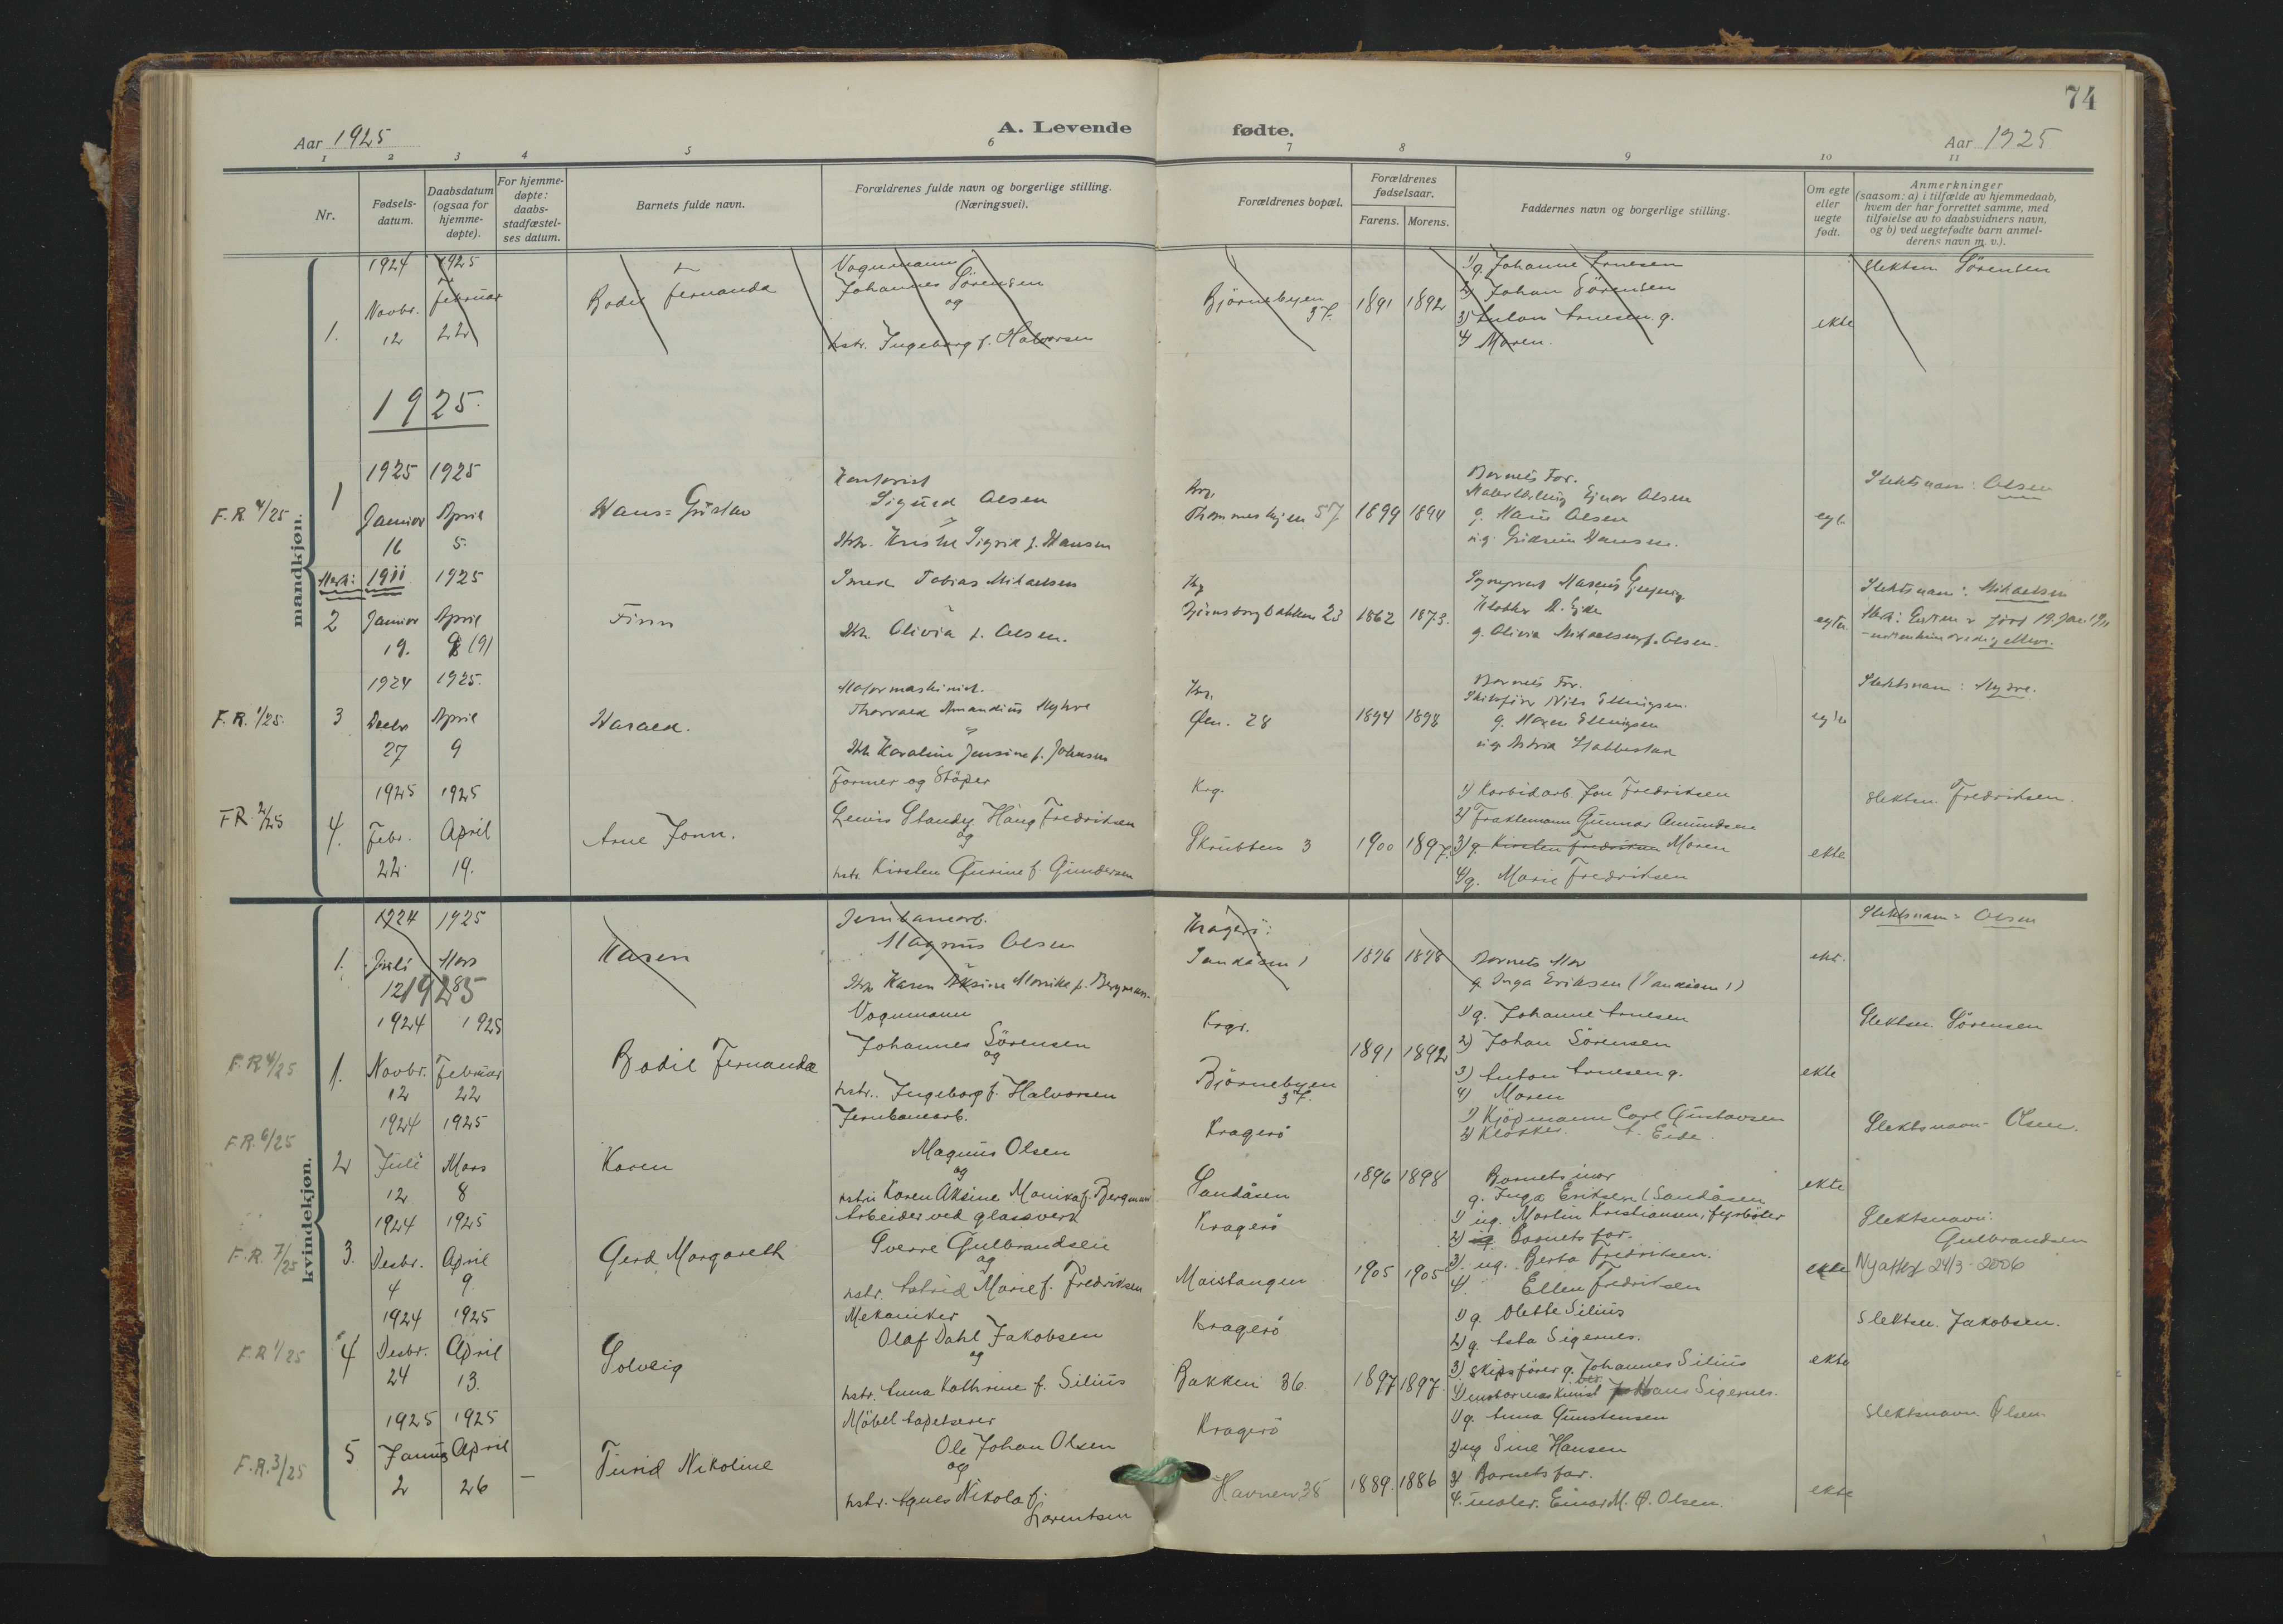 74
Aar 1925
A. Levende fødte.
Aar 1925
1 2 3 4 5 6 7 8 9 10 11
Nr.
Fødsels-
datum.
Daabsdatum
(ogsaa for
hjemme-
døpte).
For hjemme-
døpte:
daabs-
stadfæstel-
ses datum.
Barnets fulde navn.
Forældrenes fulde navn og borgerlige stilling.
(Næringsvei).
Forældrenes bopæl.
Forældrenes
fødselsaar.
Farens. Morens.
Faddernes navn og borgerlige stilling.
Om egte
eller
uegte
født.
Anmerkninger
(saasom: a) i tilfælde av hjemmedaab,
hvem der har forrettet samme, med
tilføielse av to daabsvidners navn,
og b) ved uegtefødte barn anmel-
derens navn m. v.).
mandkjøn.
1.
1924
Novbr.
12
1925
Februar
22
Bodil Fernanda
Vognmann
Johannes Sörensen
og
hstr. Ingeborg f. Halvorsen
Björnebyen
37.
1891 1892
1) g. Johanne Arnesen
2) Johan Sörensen
3) Anton Arnesen g.
4) Moren.
ekte
Slektsn. Sörensen
1925.
F.R. 4/25
1
1925
Januar
16
1925
April
5.
Hans=Gustav
Kontorist
Sigurd Olsen
Hstr. Sigrid f. Hansen
Krg.
57 1899 1894
Barnets Far.
Ejnar Olsen
g. Olsen
Hansen.
egte
Slektsnavn: Olsen
Merk:
2
1911
Januar
19.
1925
April
9 (9)
Finn
Smed Tobias Mikaelsen
Hstr. Olivia f. Olsen.
Krg
Bjørnsborgbakken 23 1862 1873.
Sogneprest
Klokker A. Eide
g. Olivia Mikaelsen f. Olsen.
egte
Slektsnavn: Mikaelsen
Merk: født 19. Jan. 1911
F.R. 1/25.
3
1924
Decbr
27
1925.
April
9
Harald.
Motormaskinist.
Thorvald Amandius Myhre
Hstr Karoline Jensine f. Johnsen
Krg.
Øen. 28
1894 1898
Barnets Far.
Skibsfører Nils Ellingsen.
g. Maren Ellingsen
ug. Astrid Stabbestad
egte
Slektsnavn: Myhre.
F.R. 2/25
4.
1925
Febr.
22
1925
April
19.
Arne Jonn.
Former og Stöper
Lewis Standy Haug Fredriksen
og
hstr. Kirsten Gurine f. Gundersen
Krg.
Skrubben 3
1900 1897.
1) Karbidarb. Jon Fredriksen
2) Fraktemann Gunnar Amundsen
3) g. Kirsten Fredriksen Moren
4) g. Marie Fredriksen
ekte
Slektsn. Fredriksen.
kvindekjøn.
1.
1924
Juli
12
1925
Mars
8
1925
Karen
Jernbanearb.
Magnus Olsen
Hstr Karen Aksine Monika f. Bergman.
Kragerö:
Sandåsen 1
1896 1898
Barnets Mor
g. Inga Eriksen (Sandåsen 1)
ekt.
Slektsnavn: Olsen
F.R 4/25
1.
1924
Novbr.
12
1925
Februar
22
Bodil Fernanda
Vognmann
Johannes Sörensen
og
hstr. Ingeborg f. Halvorsen
Krgr.
Björnebyen
37.
1891 1892
1) g. Johanne Arnesen
2) Johan Sörensen
3) Anton Arnesen g.
4) Moren
ekte
Slektsn. Sörensen
F.R. 6/25
2
1924
Juli
12
1925
Mars
8
Karen
Jernbanearb.
Magnus Olsen
og
hstr. Karen Aksine Monika f. Bergman
Kragerö
Sandåsen
1896 1898
1) Kjöpmann Carl Gustavsen
2) Klokker A. Eide.
Barnets mor
g. Inga Eriksen (Sandåsen
ekte
Slektsnavn - Olsen.
F.R. 7/25
3.
1924
Desbr.
4
1925
April
9.
Gerd Margareth
Arbeider ved glassverk
Sverre Gulbrandsen
og
hstr. Astrid Marie f. Fredriksen
Kragerö
Maistangen
1905 1905
1) ug. Martin Kristiansen, fyrböter
2) ug Barnets far.
3) ug. Berta Fredriksen.
4) Ellen Fredriksen
ekte
Slektsnavn:
Gulbrandsen
Ny attest 24/3-2006
F.R 1/25
4
1924
Desbr.
24
1925
April
13.
Solveig
Mekaniker
Olaf Dahl Jakobsen
og
hstr. Anna Kathrine f. Silius
Kragerö
Bakken 36
1897 1897.
1) g. Olette Silius
2) g. Asta Sigernes.
3) Skipsförer g. Johannes Silius
4) Hans Sigernes.
ekte
Slektsn. Jakobsen.
F.R. 3/25
5
1925
Januar
2
1925
April
26
—
Turid Nikoline
Möbeltapetserer
Ole Johan Olsen
og
hstr. Agnes Nikola f.
Lorentsen
Kragerö
Havnen 38
1889. 1886
1) g. Anna Gunstensen
2) ug Sine Hansen
3) Barnets far.
4. maler. Einar M. Ø. Olsen.
ekte
Slektsnavn Olsen.